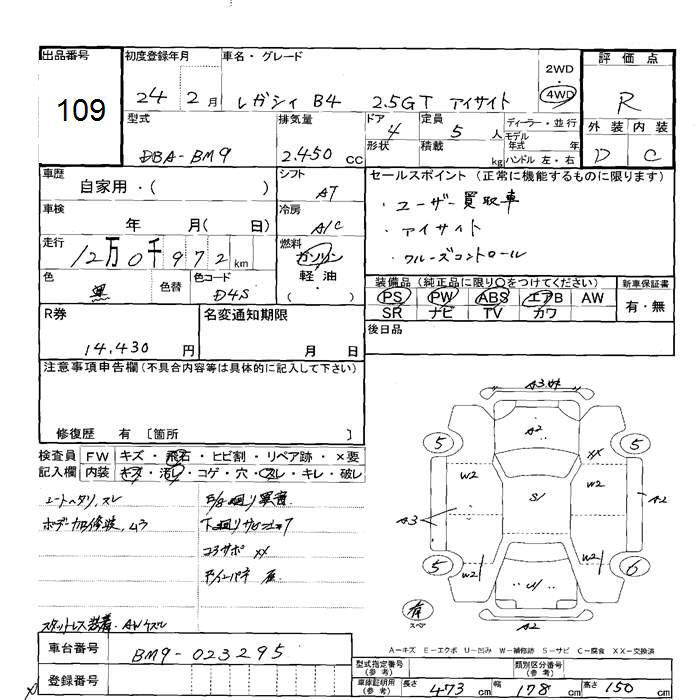 出品番号
109
初度登録年月
24 2 月
車名・グレード
レガシィ B4 2.5GT アイサイト
2WD
・
4WD
評価点
R
外装 内装
D C
型式
DBA-BM9
排気量
2.450 CC
ドア
4
形状
定員
5 人
積載
kg
ディーラー・並行
モデル
年式 年
ハンドル 左・右
車歴
自家用・( )
シフト
AT
セールスポイント (正常に機能するものに限ります)
・ユーザー買取車
・アイサイト
・クルーズコントロール
車検
年 月( 日)
冷房
A/C
走行
12万0千972km
燃料
ガソリン
軽・油
( ・ )
色
黒
色替
色コード
D4S
装備品 (純正品に限り○をつけてください)
PS PW ABS エアB AW
SR ナビ TV カワ
新車保証書
有・無
後日品
R券
14,430 円
名変通知期限
月 日
注意事項申告欄 (不具合内容等は具体的に記入して下さい)
修復歴 有 〔箇所 〕
検査員
記入欄
FW キズ・飛石・ヒビ割・リペア跡・×要
内装 キズ・汚レ・コゲ・穴・スレ・キレ・破レ
シートヘタリ,スレ
ボデー加修波,ムラ
下廻りサビ
コアサポ XX
スタットレス装着・AWキズ
A3
A2
5 5
XX
W2 W2
S/
A3
A2
W2 W2
5 6
U1
有
スペア
A2
A-キズ E-エクボ U-凹み W-補修跡 S-サビ C-腐食 XX-交換済
車台番号
BM9-023295
登録番号
型式指定番号
(参考)
類別区分番号
(参考)
車庫証明用
(参考)
長さ 473 cm 幅 178 cm 高さ 150 cm